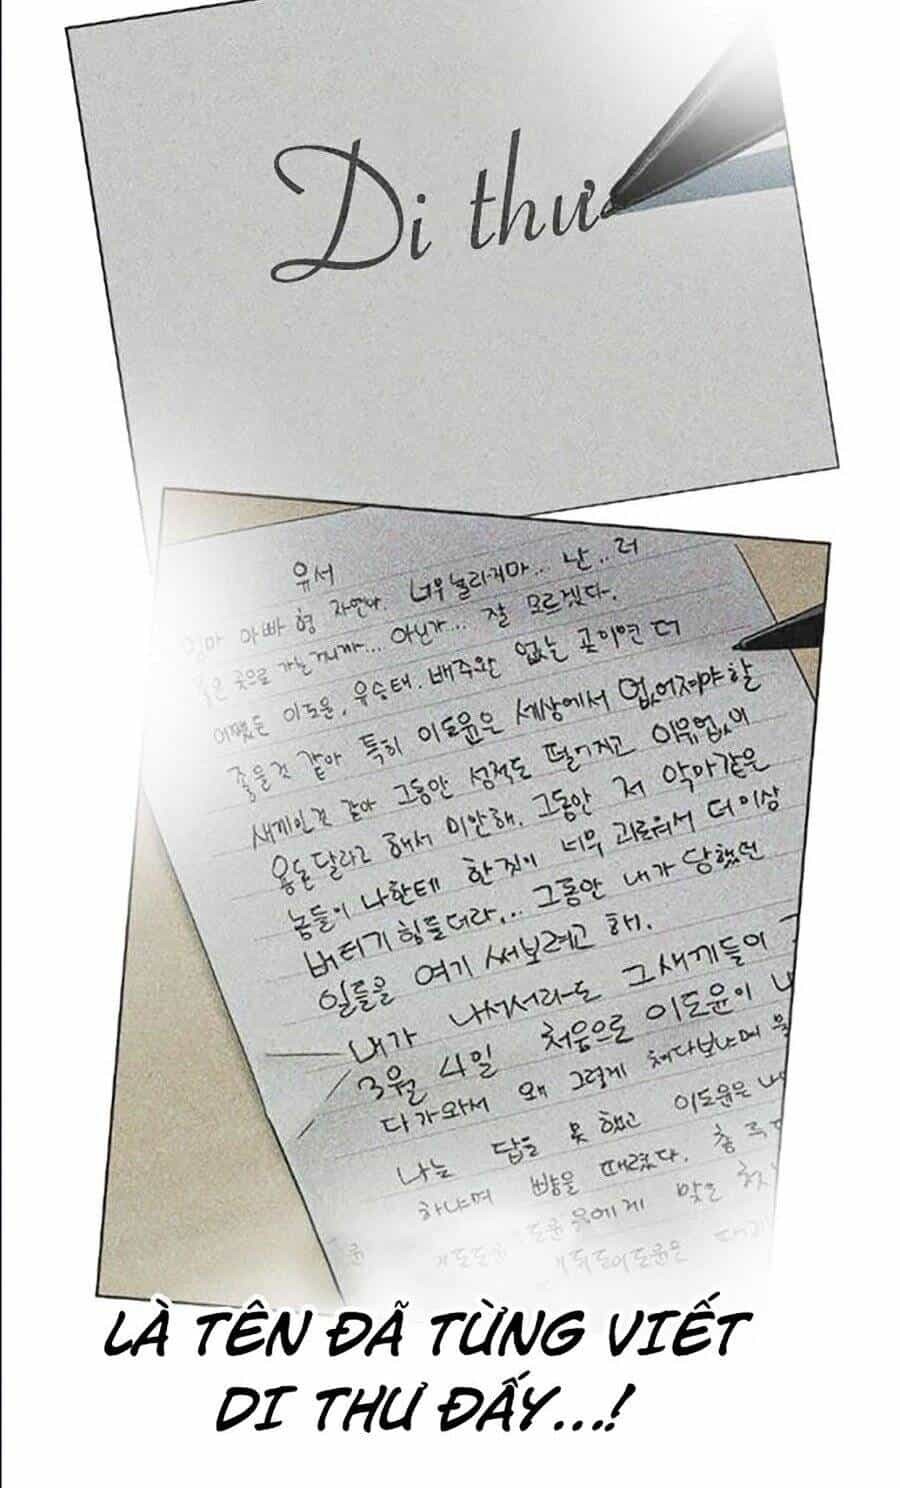 Di thư
유서
엄마 아빠 형 자연아. 너무 놀라지마... 난..더
좋은 곳으로 가는거니까... 아닌가... 잘 모르겠다.
어쨌든 이도윤, 유승태, 배주완 없는 곳이면 더
좋을것 같아 특히 이도윤은 세상에서 없어져야 할
새끼인것 같아 그동안 성적도 떨어지고 이유없이
용돈달라고 해서 미안해. 그동안 저 악마같은
놈들이 나한테 한 짓이 너무 괴로워서 더 이상
버티기 힘들더라... 그동안 내가 당했던
일들을 여기 써보려고 해.
내가 나서서라도 그새끼들이
3월 4일 처음으로 이도윤이
다가와서 왜 그렇게 쳐다보냐며
나는 답을 못 했고 이도윤은
하냐며 뺨을 때렸다.
맞은
LÀ TÊN ĐÃ TỪNG VIẾT
DI THƯ ĐẤY...!